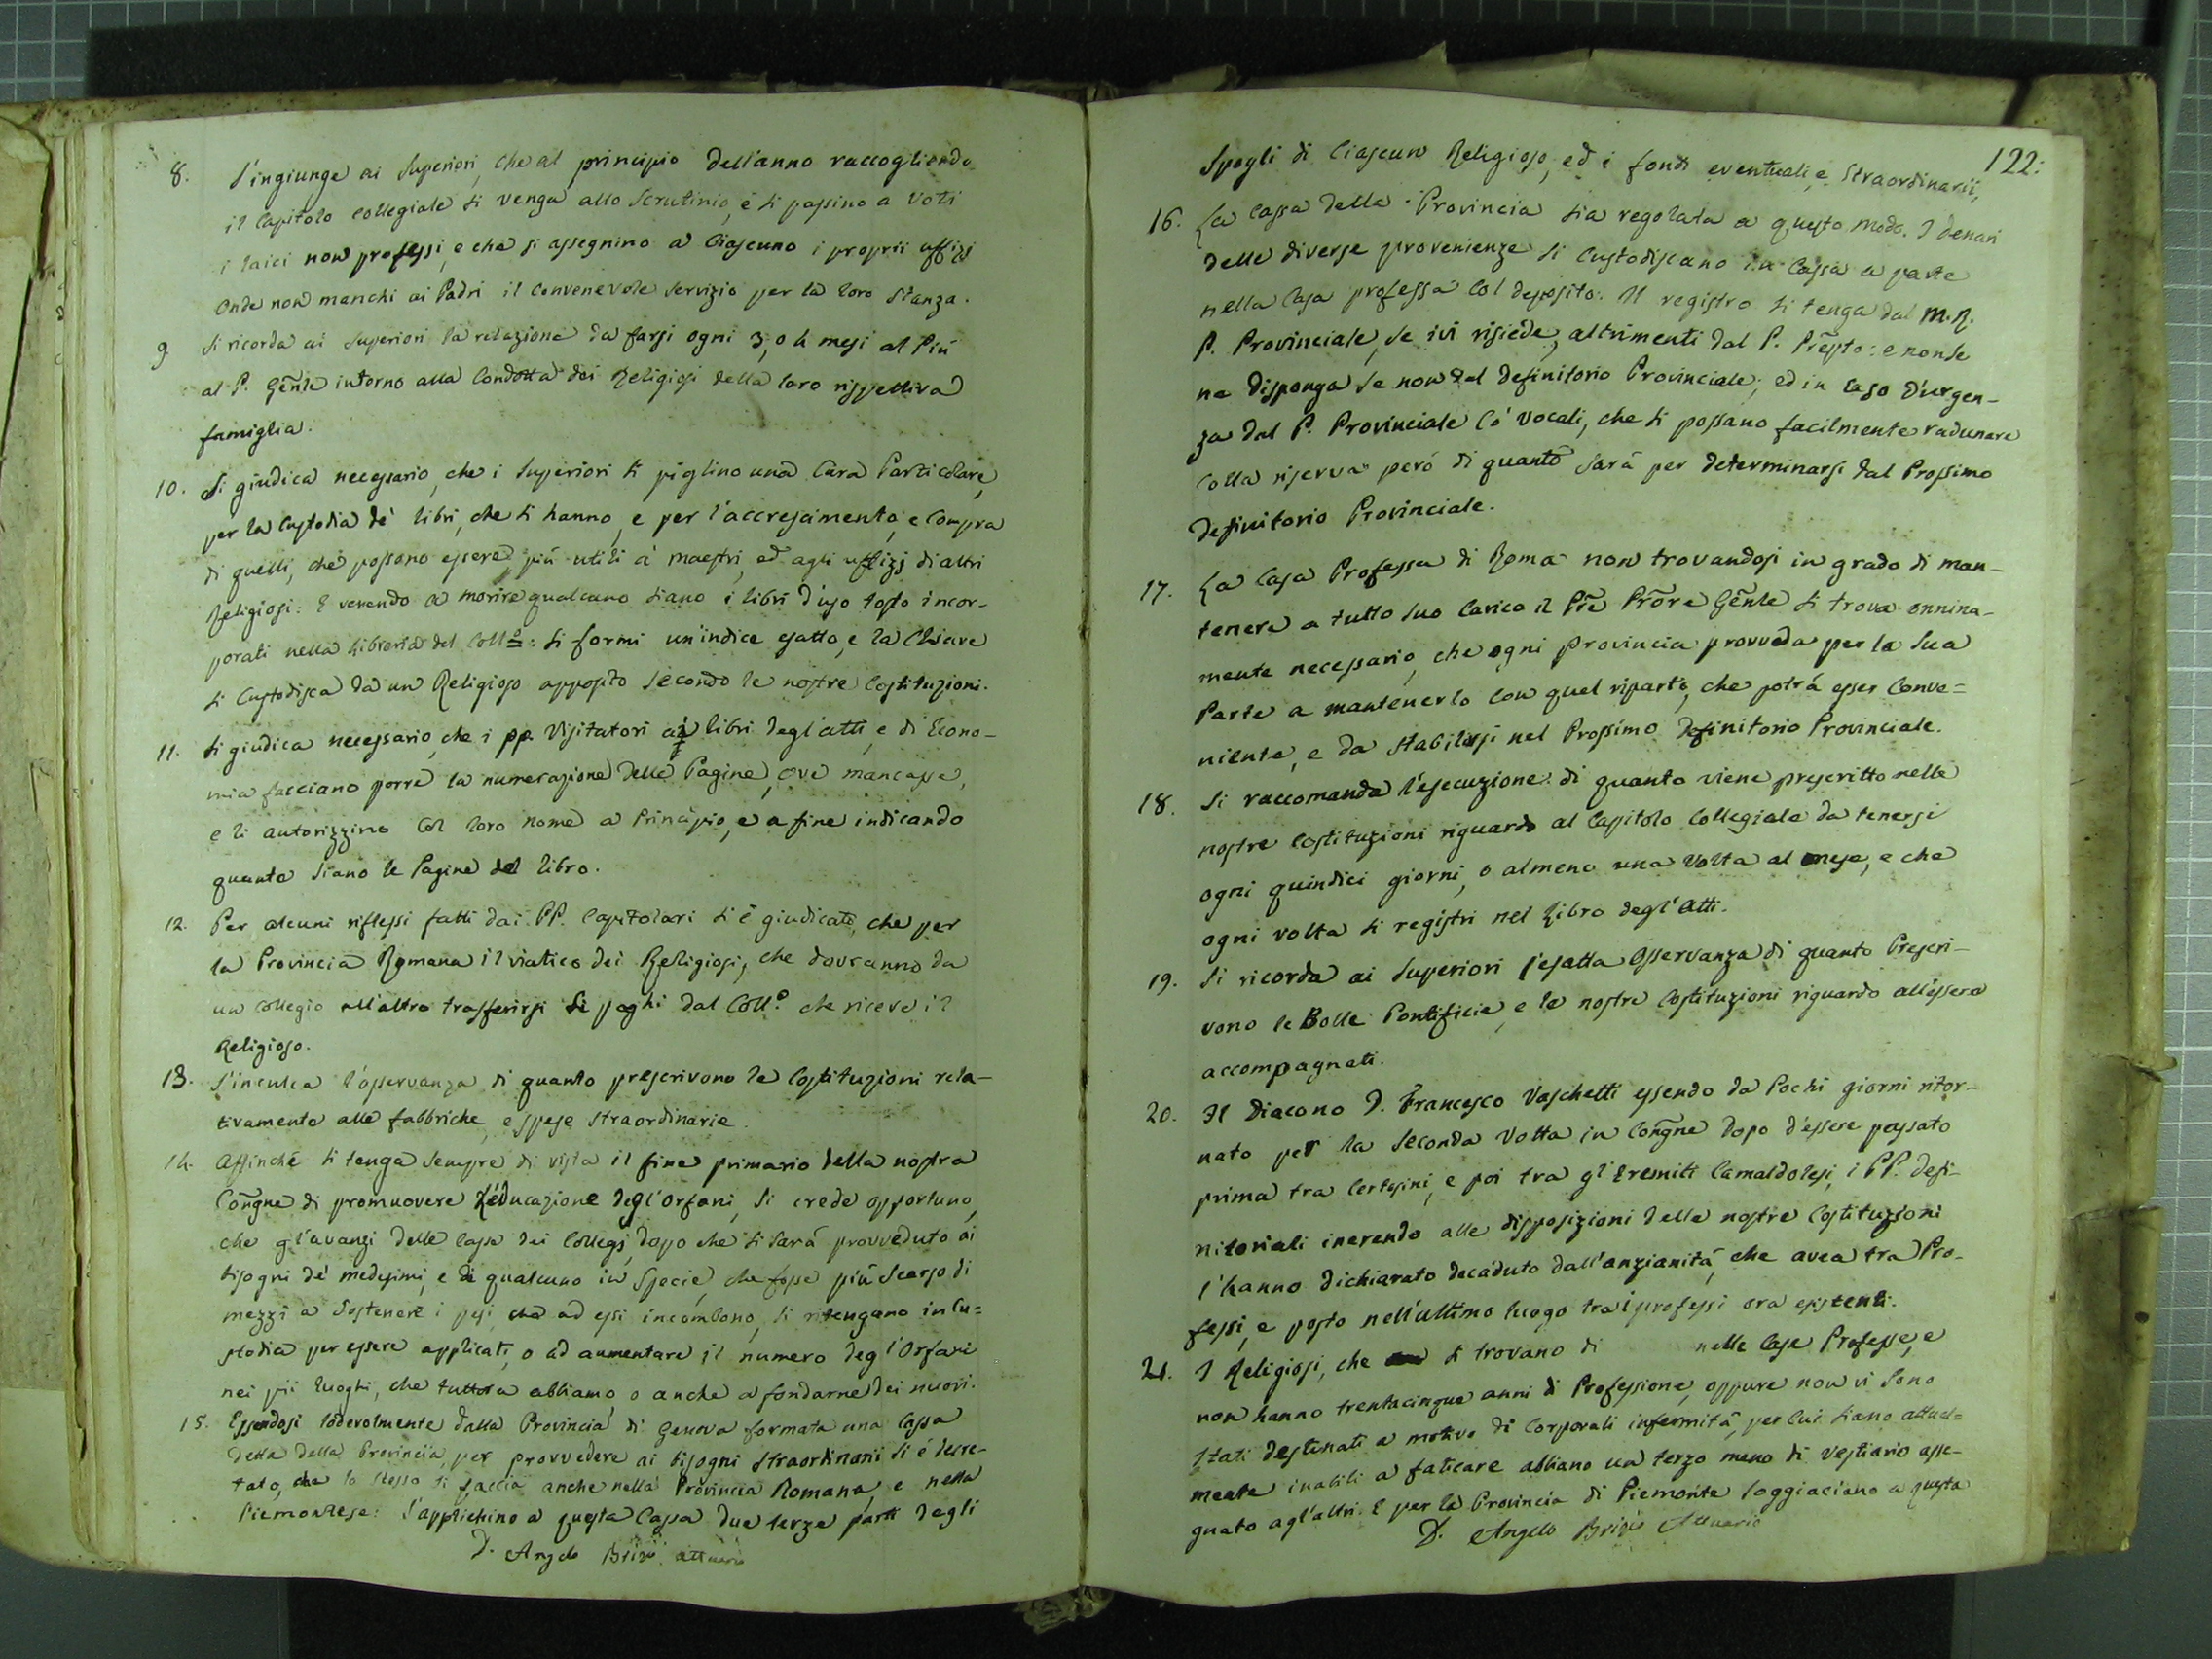 8. S'ingiunge ai Superiori, che al principio dell'anno raccogliendo
il Capitolo Collegiale si venga allo Scrutinio, e si passino a voti
i laici non professi, e che si assegnino a ciascuno i proprii uffizj
onde non manchi ai Padri il convenevole servizio per la loro stanza.
9 Si ricorda ai Superiori la relazione da farsi ogni 3, o 4 mesi al più
al P. Gēnle intorno alla condotta dei Religiosi della loro rispettiva
famiglia.
10. Si giudica necessario, che i Superiori si piglino una cura Particolare,
per la custodia de' libri, che si hanno, e per l'accrescimento, e compra
di quelli, che possono essere più utili a' maestri, ed agli uffizj di altri
Religiosi: E venendo a morire qualcuno siano i libri d'uso tosto incor-
porati nella libreria del Coll.o: si formi un'indice esatto, e la Chiave
si custodisca da un Religioso apposito secondo le nostre Costituzioni.
11. Si giudica necessario, che i pp. Visitatori ai libri degl'atti, e di Econo-
mia facciano porre la numerazione delle Pagine, ove mancasse,
e li autorizzino col loro nome a Principio, e a fine indicando
quante siano le Pagine del libro.
12. Per alcuni riflessi fatti dai PP. Capitolari si è giudicato, che per
la Provincia Romana il viatico dei Religiosi, che dovranno da
un Collegio all'altro trasferirsi si paghi dal Coll.o che riceve il
Religioso.
13. S'inculca l'osservanza di quanto prescrivono le Costituzioni rela-
tivamente alle fabbriche, e spese straordinarie.
14. Affinché si tenga sempre di vista il fine primario della nostra
Congñe di promuovere l'educazione degl'Orfani, si crede opportuno,
che gl'avanzi delle casse dei Collegj, dopo che si sarà provveduto ai
bisogni de' medesimi, e di qualcuno in specie, che fosse più scarso di
mezzi a sostenere i pesi che ad essi incombono, si ritengano in cu=
stodia per essere applicati, o ad aumentare il numero degl'Orfani
nei pii luoghi, che tuttora abbiamo, o anche a fondarne dei nuovi.
15. Essendosi lodevolmente dalla Provincia di Genova formata una Cassa
detta della Provincia, per provvedere ai bisogni straordinarii si è decre-
tato, che lo stesso si faccia anche nella Provincia Romana, e nella
Piemontese: S'applichino a questa Cassa due terze parti degli
D. Angelo Brizio attuario
122:
Spogli di Ciascun Religioso, ed i fondi eventuali, e straordinarii,
16. La Cassa della Provincia sia regolata a questo modo. I denari
delle diverse provenienze si custodiscano in Cassa a parte
nella Casa professa col deposito. Il registro si tenga dal M.R.
P. Provinciale, se ivi risiede, altrimenti dal P. Prēpsto: e non se
ne disponga se non dal definitorio Provinciale; ed in caso d'urgen-
za dal P. Provinciale co' vocali, che si possano facilmente radunare
colla riserva però di quanto sarà per determinarsi dal Prossimo
Definitorio Provinciale.
17. La Casa Professa di Roma non trovandosi in grado di man-
tenere a tutto suo carico il Prē Prōre Gēnle si trova onnina-
mente necessario, che ogni Provincia provveda per la sua
Parte a mantenerlo con quel riparto, che potrà esser conve=
niente, e da stabilirsi nel Prossimo Definitorio Provinciale.
18. Si raccomanda l'esecuzione di quanto viene prescritto nelle
nostre Costituzioni riguardo al Capitolo Collegiale da tenersi
ogni quindici giorni, o almeno una volta al mese, e che
ogni volta si registri nel Libro degl'Atti.
19. Si ricorda ai Superiori l'esatta osservanza di quanto Prescri-
vono le Bolle Pontificie, e le nostre Costituzioni riguardo all'essere
accompagnati.
20. Il Diacono D. Francesco Vaschetti essendo da Pochi giorni ritor-
nato per la seconda volta in Congñe dopo d'essere passato
prima tra Certosini, e poi tra gl'Eremiti Camaldolesi, i PP. Defi-
nitoriali inerendo alle disposizioni delle nostre Costituzioni
l'hanno dichiarato decaduto dall'anzianità, che avea tra Pro-
fessi, e posto nell'ultimo luogo tra i professi ora esistenti.
21. I Religiosi, che si trovano di nelle Case Professe, e
non hanno trentacinque anni di Professione, oppure non vi sono
stati destinati a motivo di corporali infermità, per cui siano attual=
mente inabili a faticare abbiano un terzo meno di vestiario asse-
gnato agl'altri. E per la Provincia di Piemonte soggiaciano a questa
D. Angelo Brizio Attuario